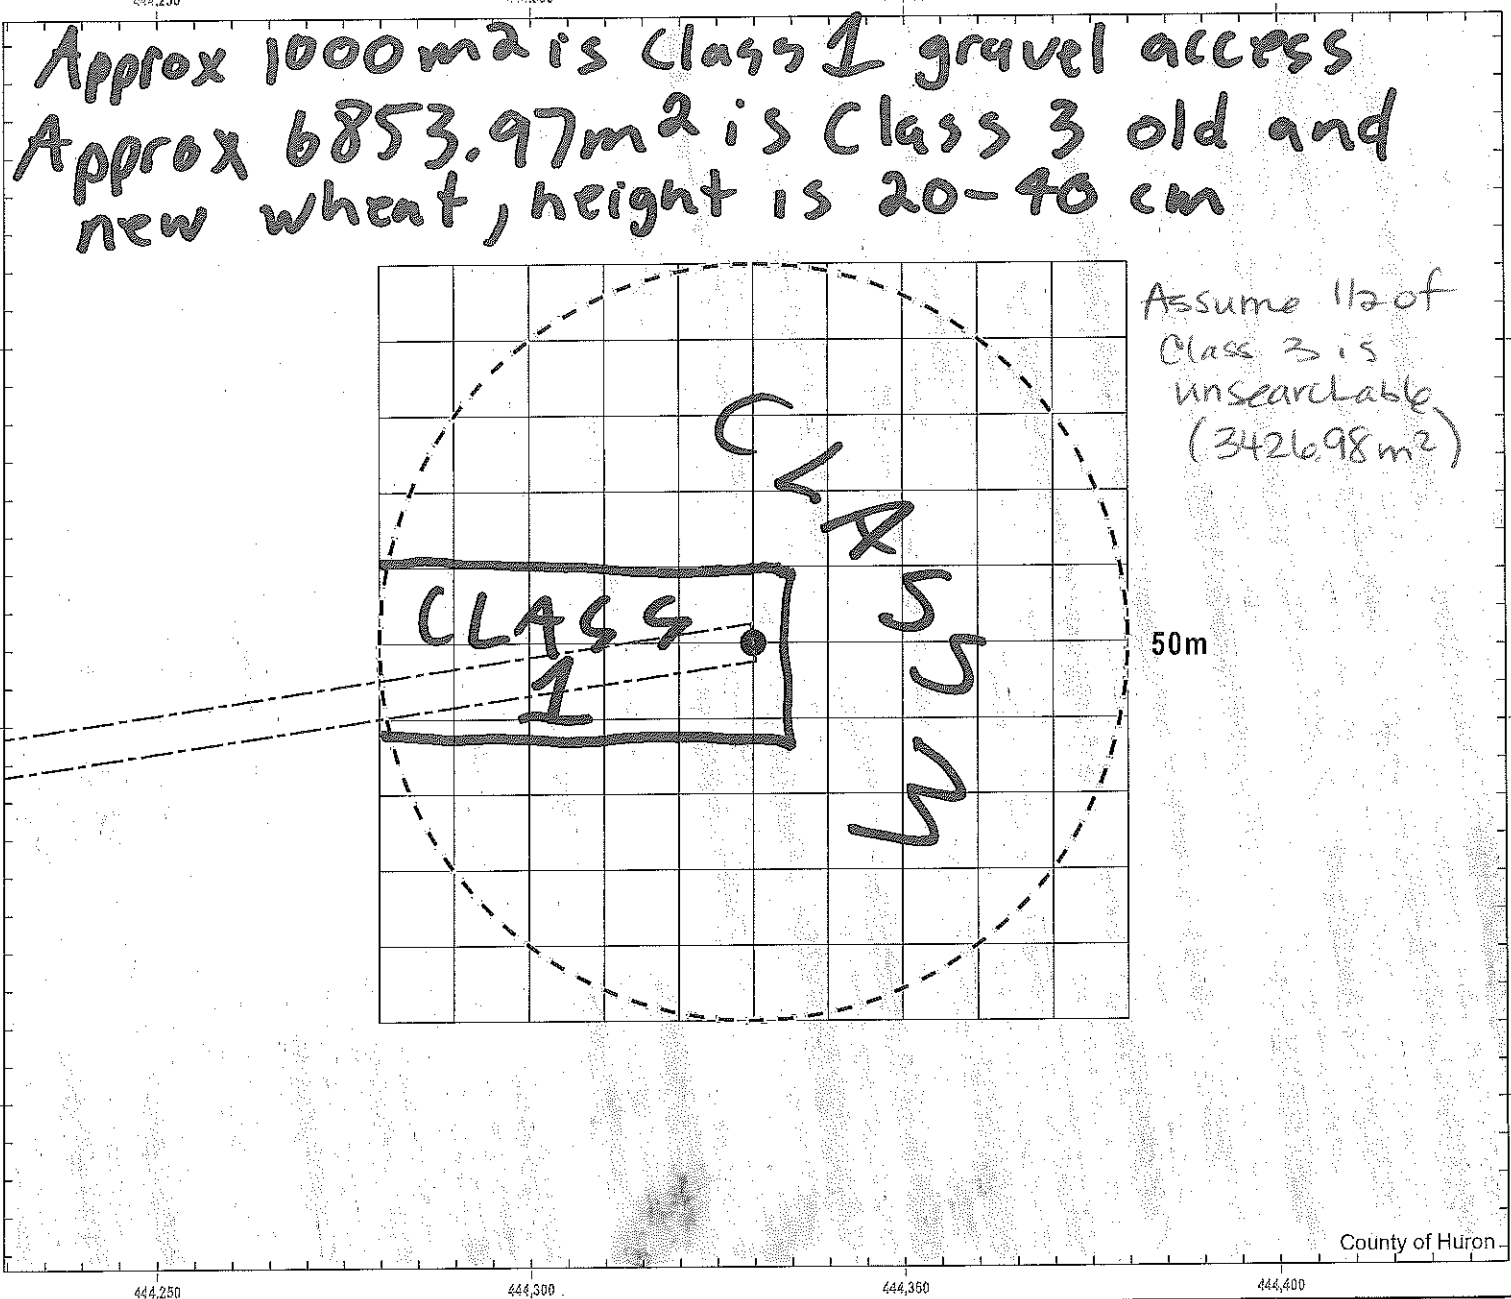 Approx 1000m2 is Class 1 gravel access
Approx 6853.97m2 is Class 3 old and
new wheat, height is 20-40 cm
Assume 1/2 of
Class 3 is
unsearchable
(3426.98m2)
CLASS 3
CLASS
1
50m
County of Huron
444,250
444,300
444,350
444,400